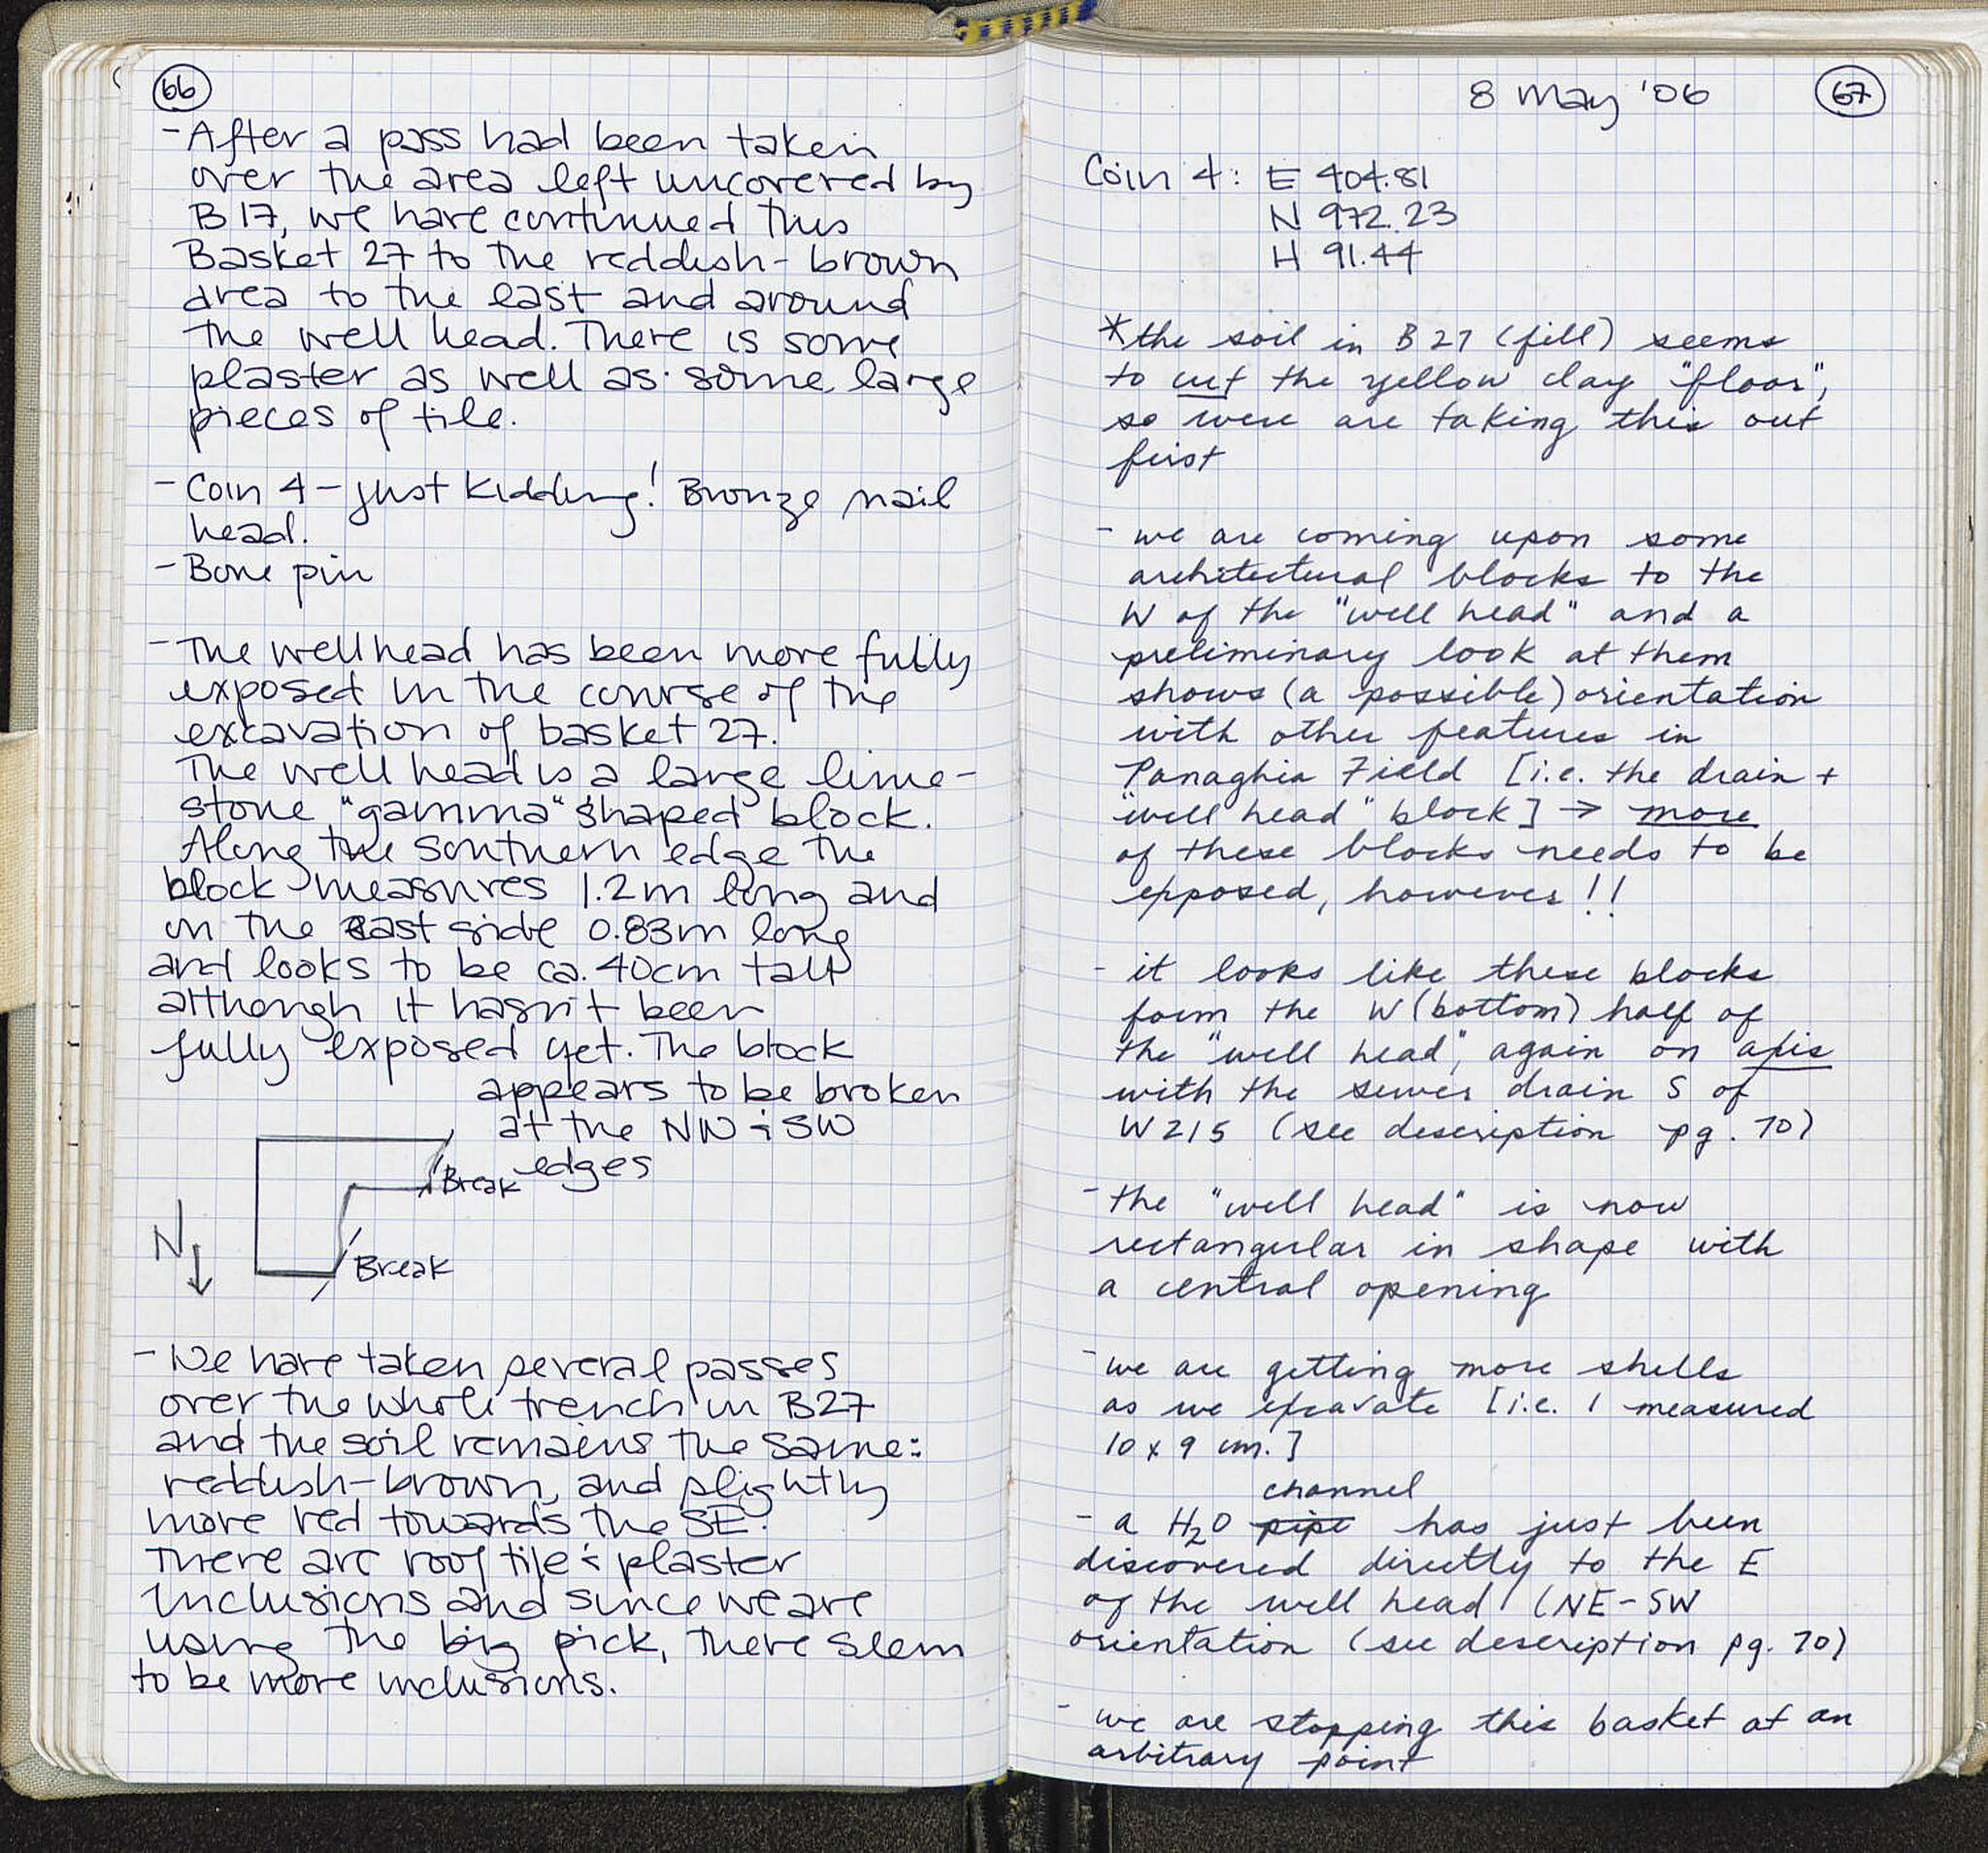 66
- After a pass had been taken
over the area left uncovered by
B17, we have continued this
Basket 27 to the reddish-brown
area to the east and around
the well head. There is some
plaster as well as some large
pieces of tile.
- Coin 4 - just kidding! Bronze nail
head.
- Bone pin
- The wellhead has been more fully
exposed in the course of the
excavation of basket 27.
The well head is a large lime-
stone "gamma" shaped block.
Along the southern edge the
block measures 1.2m long and
on the East side 0.83m long
and looks to be ca. 40cm tall
although it hasn't been
fully exposed yet. The block
appears to be broken
at the NW & SW
edges
Break
N
Break
- We have taken several passes
over the whole trench in B27
and the soil remains the same:
reddish-brown, and slightly
more red towards the SE.
There are roof tile & plaster
inclusions and since we are
using the big pick, there seem
to be more inclusions.
8 May '06
67
Coin 4: E 404.81
N 972.23
H 91.44
*the soil in B27 (fill) seems
to cut the yellow clay "floor",
so were are taking this out
first
- we are coming upon some
architectural blocks to the
W of the "well head" and a
preliminary look at them
shows (a possible) orientation
with other features in
Panaghia Field [i.e. the drain +
"well head" block] → more
of these blocks needs to be
exposed, however!!
- it looks like these blocks
form the W (bottom) half of
the "well head", again on axis
with the sewer drain S of
W215 (see description pg. 70)
- the "well head" is now
rectangular in shape with
a central opening
- we are getting more shells
as we excavate [i.e. 1 measured
10 x 9 cm.]
channel
- a H2O pipe has just been
discovered directly to the E
of the well head (NE-SW
orientation (see description pg. 70)
- we are stopping this basket at an
arbitrary point